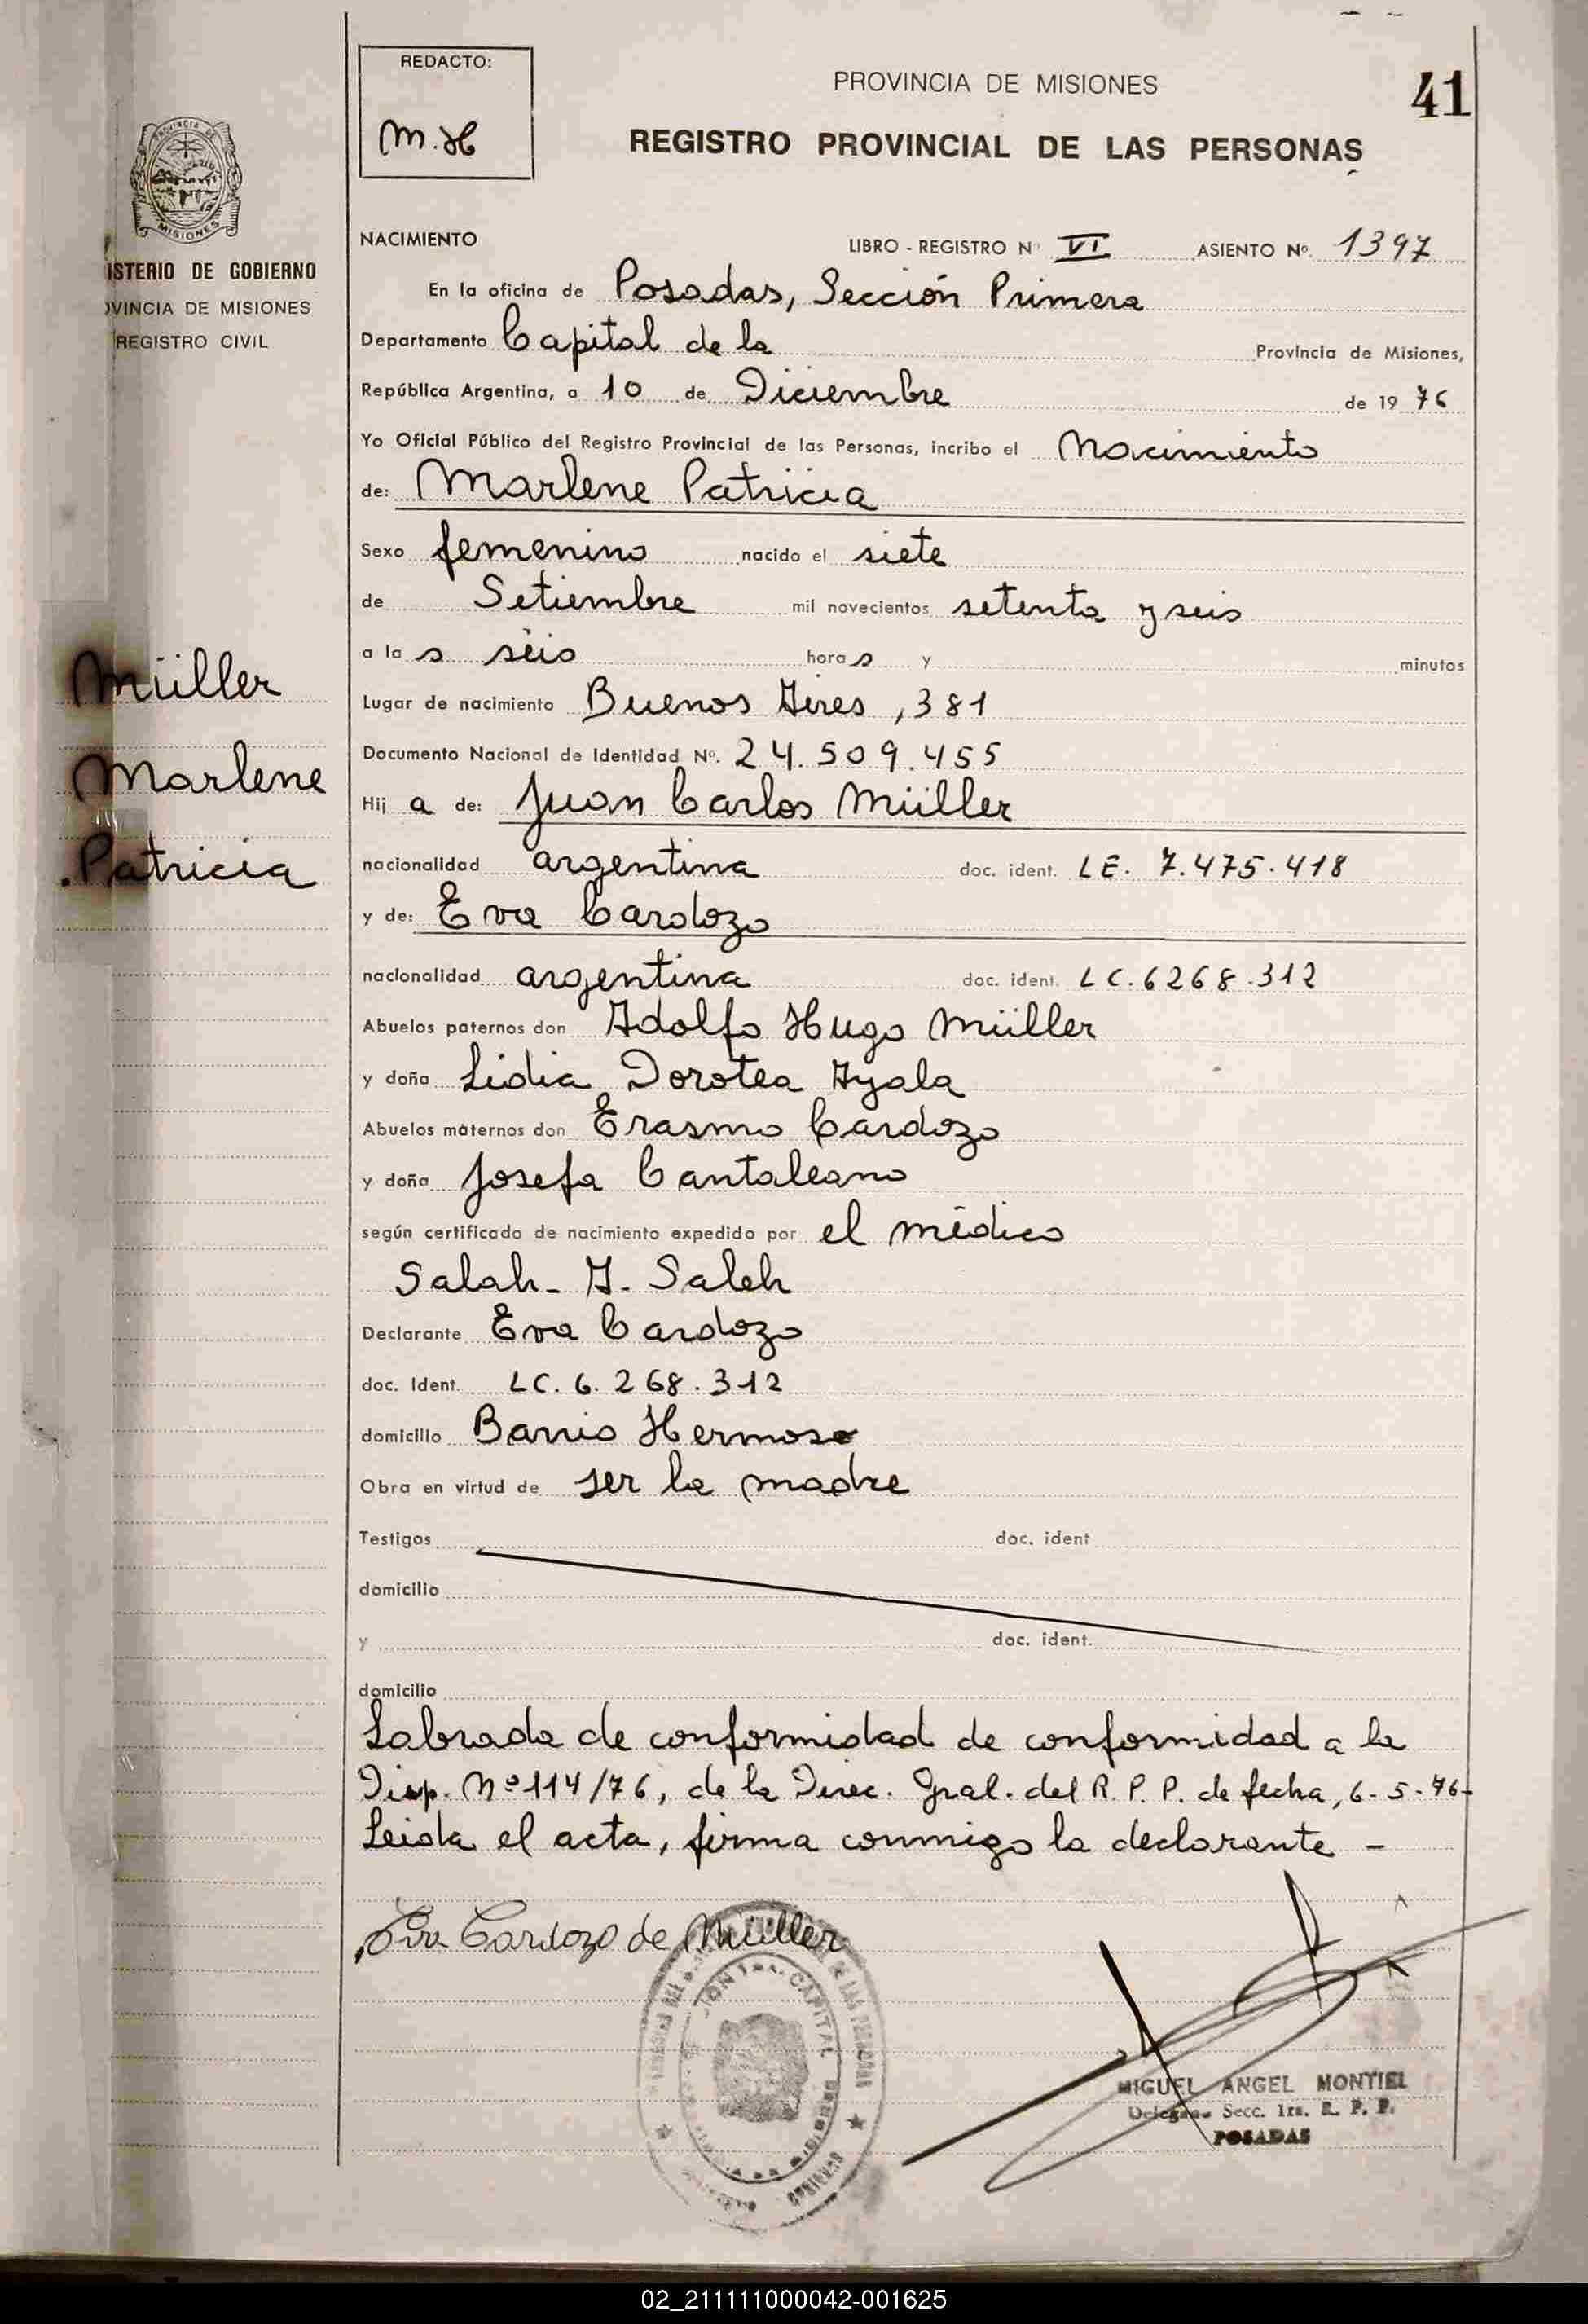 REDACTO:
M.H
PROVINCIA DE MISIONES
41
REGISTRO PROVINCIAL DE LAS PERSONAS
MISIONES
ISTERIO DE GOBIERNO
OVINCIA DE MISIONES
REGISTRO CIVIL
NACIMIENTO LIBRO - REGISTRO Nº VI ASIENTO Nº. 1397
En la oficina de Posadas, Sección Primera
Departamento Capital de la Provincia de Misiones,
República Argentina, a 10 de Diciembre de 19 76
Yo Oficial Público del Registro Provincial de las Personas, incribo el Nacimiento
de: Marlene Patricia
Sexo femenino nacido el siete
de Setiembre mil novecientos setenta y seis
a la s seis hora s y minutos
Lugar de nacimiento Buenos Aires, 381
Documento Nacional de Identidad Nº. 24.509.455
Hij a de: Juan Carlos Müller
nacionalidad argentina doc. ident. LE. 7.475.418
y de: Eva Cardozo
nacionalidad argentina doc. ident. LC. 6268.312
Abuelos paternos don Adolfo Hugo Müller
y doña Lidia Dorotea Ayala
Abuelos maternos don Erasmo Cardozo
y doña Josefa Cantaleano
según certificado de nacimiento expedido por el médico
Salah - A. Saleh
Declarante Eva Cardozo
doc. Ident. LC. 6.268.312
domicilio Barrio Hermoso
Obra en virtud de ser la madre
Testigos doc. ident
domicilio
y doc. ident.
domicilio
Labrada de conformidad de conformidad a la
Disp. Nº 114/76, de la Direc. Gral. del R. P. P. de fecha, 6-5-76-
Leida el acta, firma conmigo la declarante -
Müller
Marlene
Patricia
Eva Cardozo de Müller
CAPITAL
MIGUEL ANGEL MONTIEL
Delegado Secc. 1ra. R. P. P.
POSADAS
02_211111000042-001625